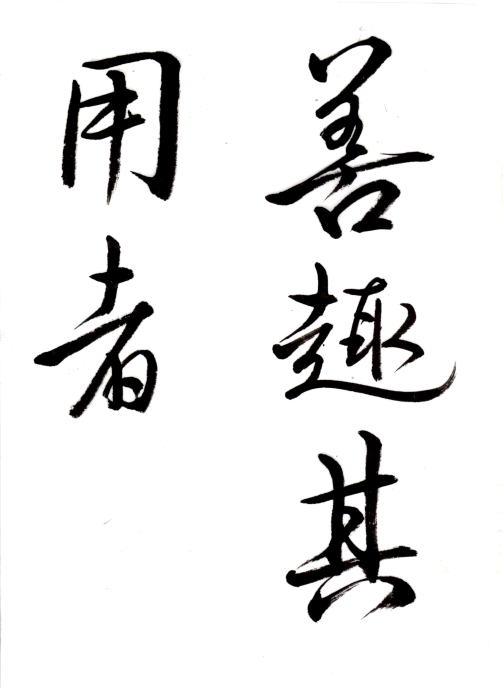 善趣其
用者